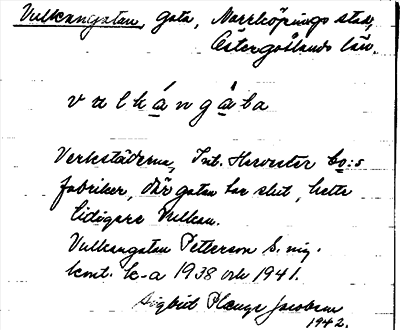 Vulkangatan, gata, Norrköpings stad,
Östergötlands län.
vulkángàta
Verkstäderna, Int. Harvester Co:s
fabriker, där gatan tar slut, hette
tidigare Vulkan.
Vulkangatan Petterson S. mig.
kont. k-a 1938 och 1941.
Sigurd Plaenge Jacobson
1942.